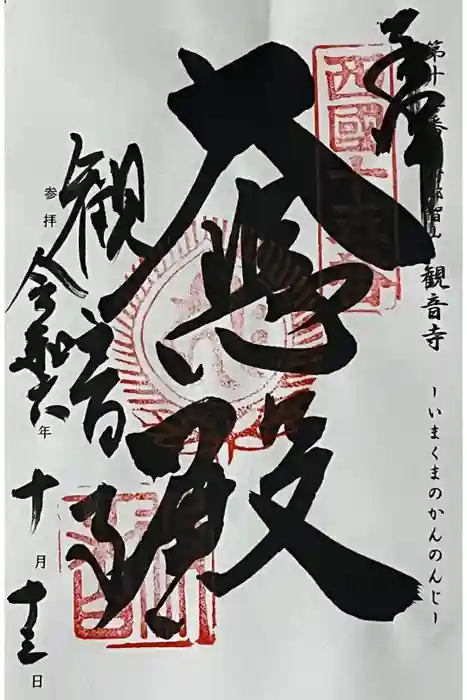 奉
第十五番 新那智山 観音寺
－いまくまのかんのんじ－
西國十五番
大悲殿
観音寺
参拝
令和六年
十月
十三日